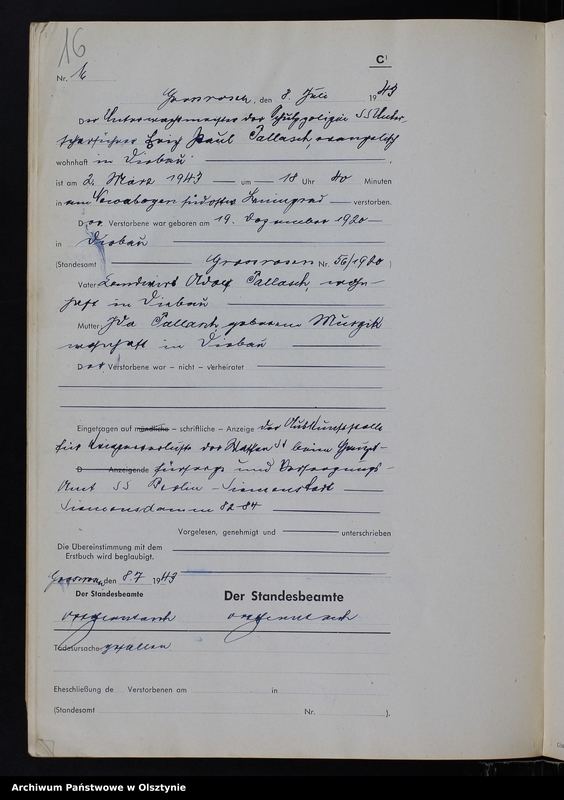 16
C¹
Nr. 16
Grossrosen, den 8. Juli 1943
Der Unterwachtmeister der Schutzpolizei SS Unter-
scharführer Paul Pallasch, evangelisch
wohnhaft in Diebau
ist am 2. März 1943 um 18 Uhr 40 Minuten
in am Newabogen südostw. Leningrad verstorben.
Der Verstorbene war geboren am 19. Dezember 1920
in Diebau
(Standesamt Grossrosen Nr. 56/1920)
Vater: Landwirt Adolf Pallasch, wohn-
haft in Diebau
Mutter: Ida Pallasch, geborene
wohnhaft in Diebau
Der Verstorbene war – nicht – verheiratet
Eingetragen auf mündliche – schriftliche – Anzeige der Auskunftstelle
für Kriegsverluste der Waffen SS beim Haupt-
D Anzeigende fürsorge und Versorgungs-
Amt SS Berlin – Siemensstadt
Siemensdamm 82-84
Vorgelesen, genehmigt und unterschrieben
Die Übereinstimmung mit dem
Erstbuch wird beglaubigt.
Grossrosen, den 8.7 1943
Der Standesbeamte Der Standesbeamte
Todesursache: gefallen
Eheschließung de Verstorbenen am in
(Standesamt Nr. ).
Archiwum Państwowe w Olsztynie